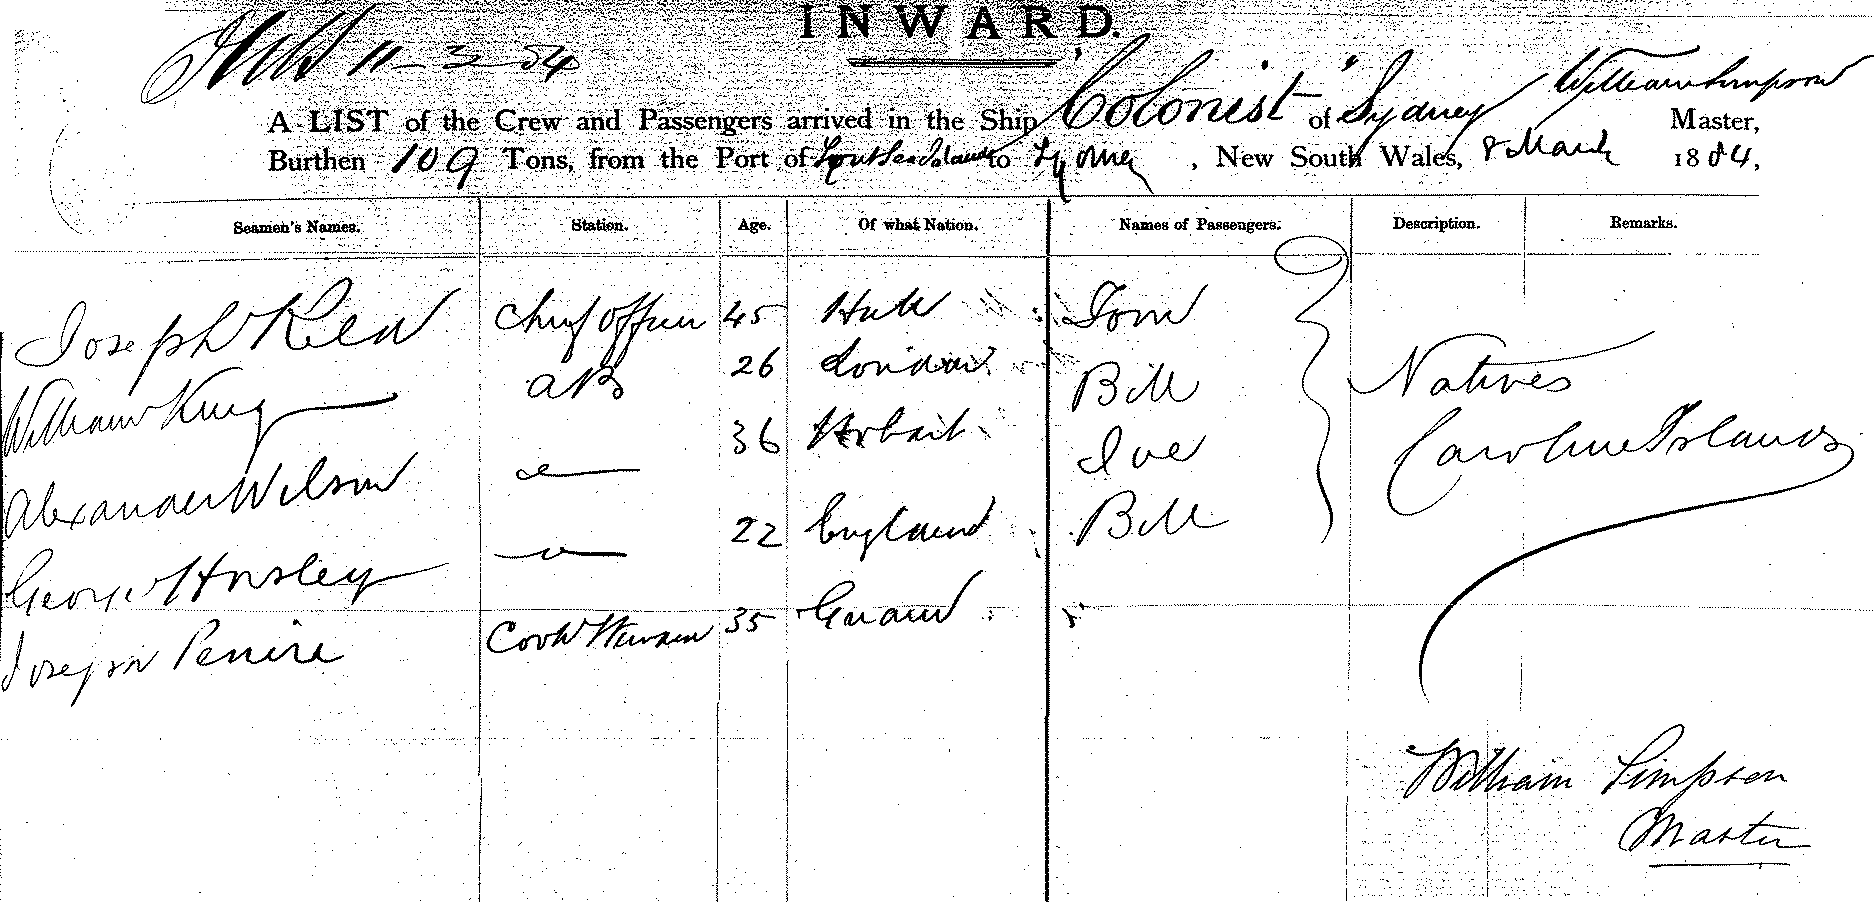 INWARD.
11-3-84
A LIST of the Crew and Passengers arrived in the Ship "Colonist" of Sydney William Simpson Master,
Burthen 109 Tons, from the Port of South Sea Islands to Sydney, New South Wales, 8 March 1884,
Seamen's Names. Station. Age. Of what Nation. Names of Passengers. Description. Remarks.
Joseph Chief Officer 45 Hull Tom
William King AB 26 London Bill Natives
Alexander Wilson 36 Hobart Joe Caroline Islands
George Horsley 22 England Bill
Joseph Cook Steward 35
William Simpson
Master